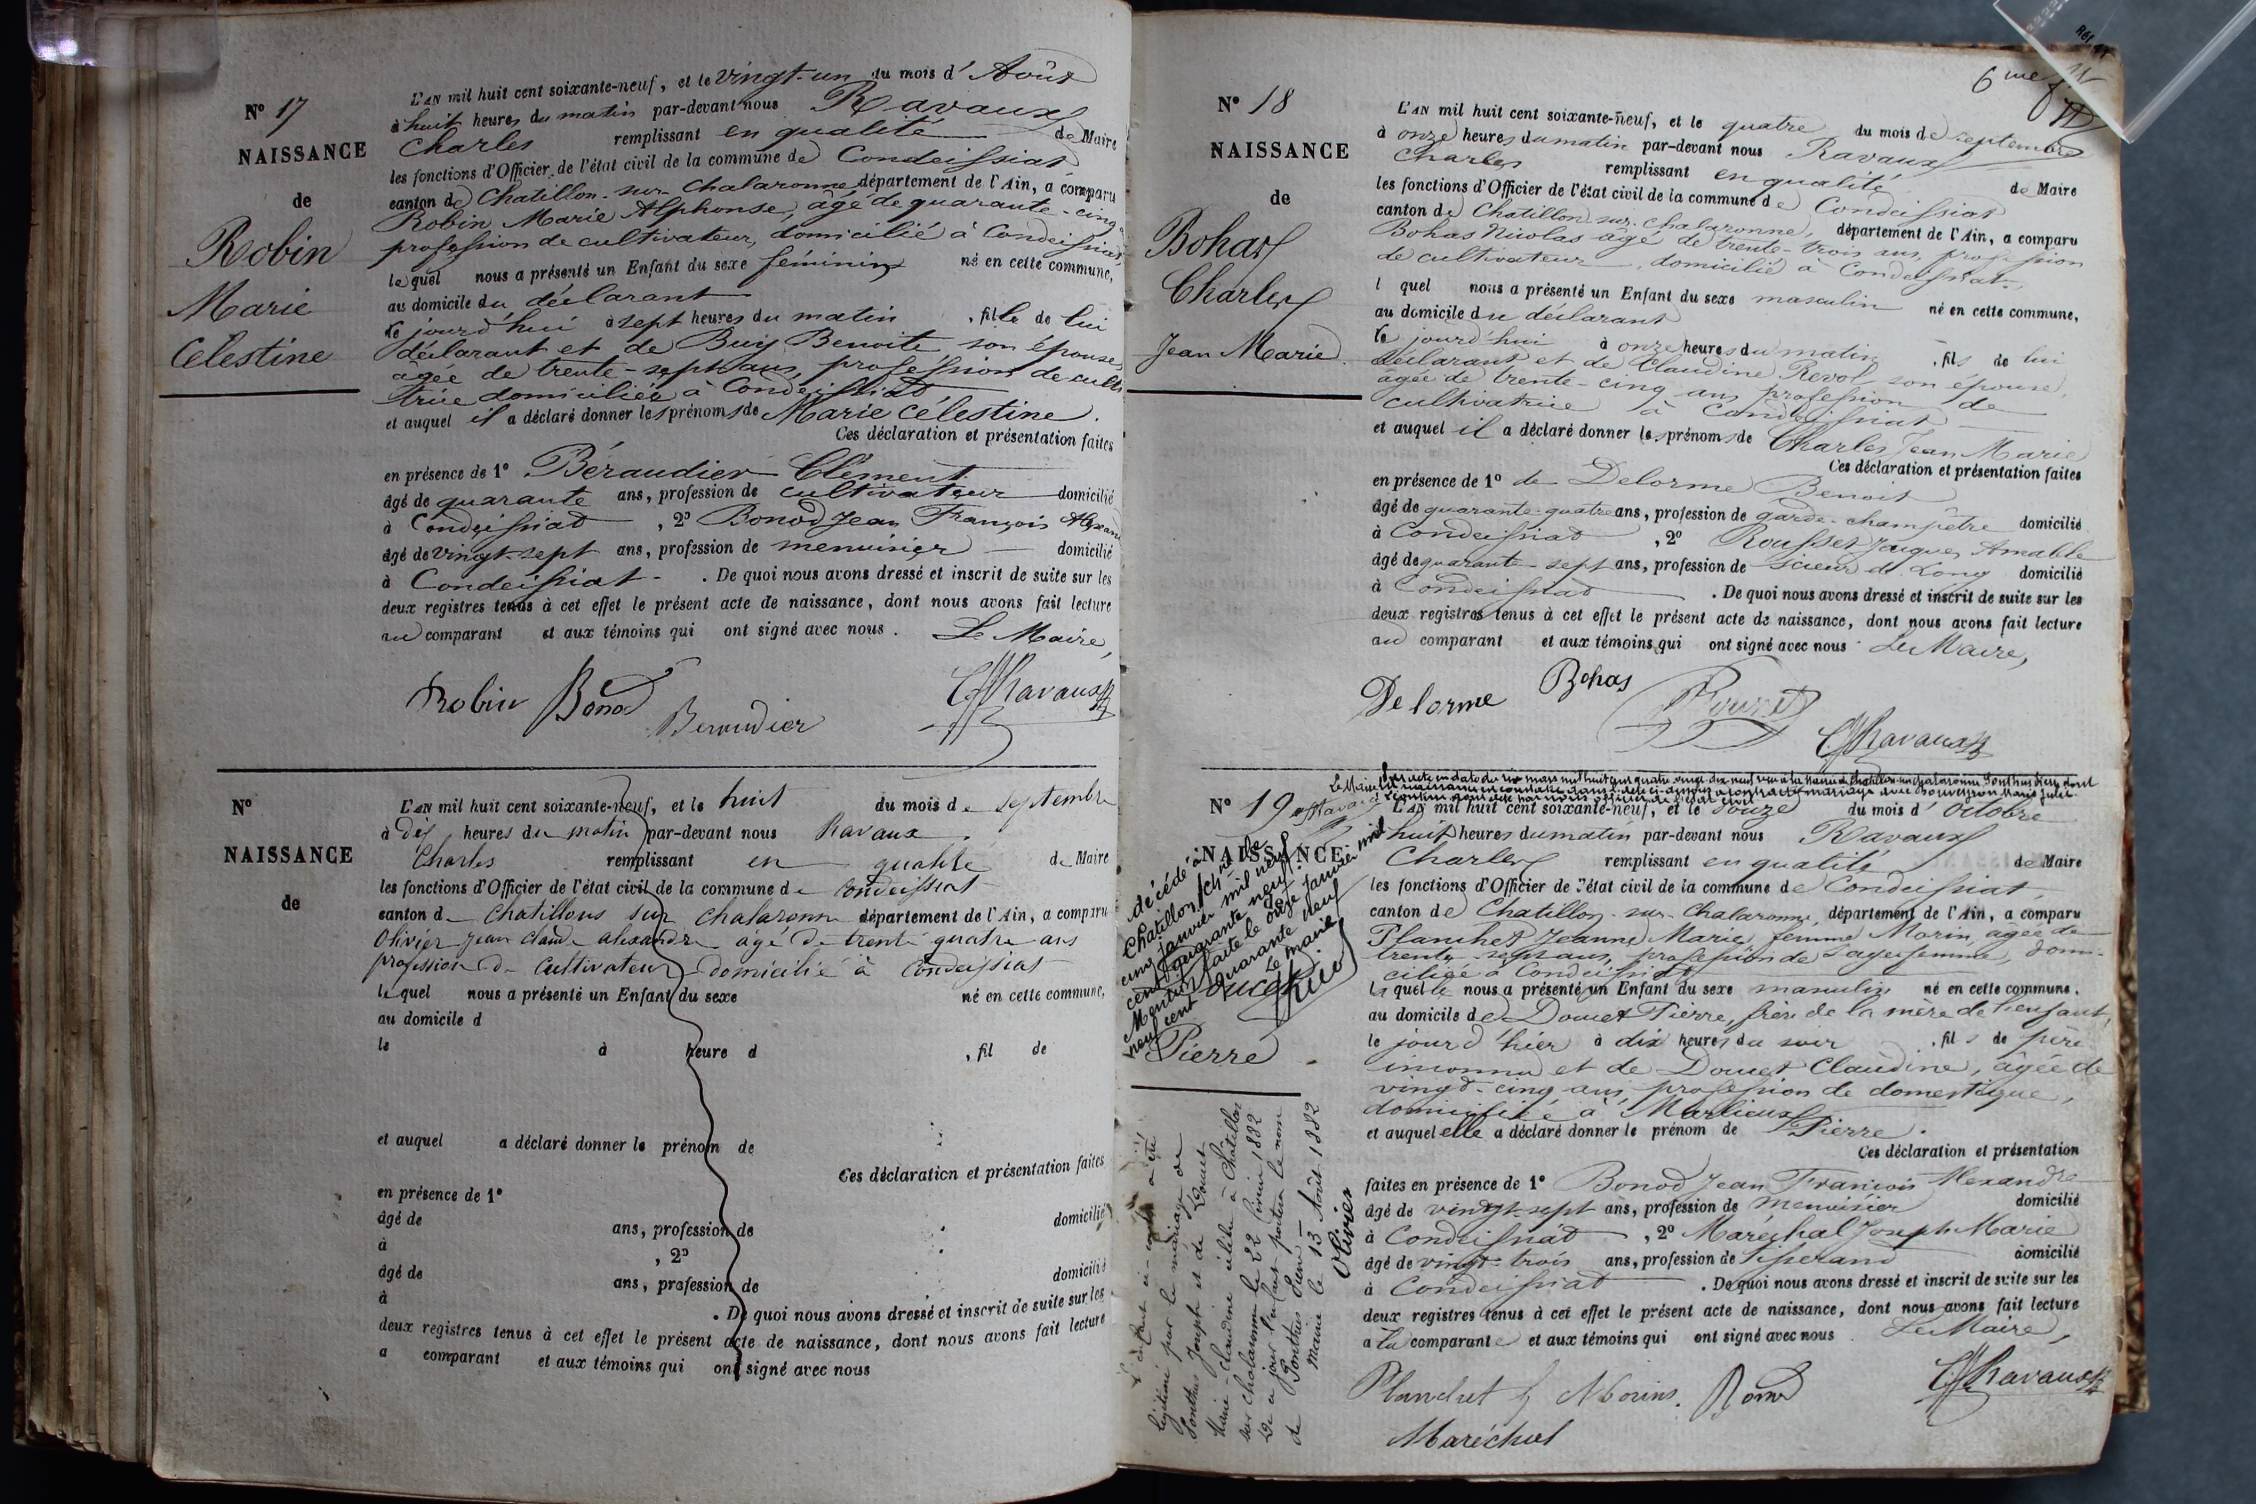 N° 17
NAISSANCE
de
Robin
Marie
Célestine
L'AN mil huit cent soixante-neuf, et le vingt-un du mois d'Août
à huit heures du matin par-devant nous Ravaux
Charles remplissant en qualité de Maire
les fonctions d'Officier de l'état civil de la commune de Condeissiat
canton de Chatillon-sur-Chalaronne, département de l'Ain, a comparu
Robin Marie Alphonse, âgé de quarante-cinq
profession de cultivateur, domicilié à Condeissiat
lequel nous a présenté un Enfant du sexe féminin né en cette commune,
au domicile du déclarant
le jourd'hui à sept heures du matin, fille de lui
déclarant et de Buiy Benoite son épouse
âgée de trente-sept ans, profession de culti
trice domiciliée à Condeissiat
et auquel il a déclaré donner les prénoms de Marie Célestine.
Ces déclaration et présentation faites
en présence de 1° Béraudier Clément
âgé de quarante ans, profession de cultivateur domicilié
à Condeissiat, 2° Bonod Jean François Alexand
âgé de vingt-sept ans, profession de menuisier domicilié
à Condeissiat. De quoi nous avons dressé et inscrit de suite sur les
deux registres tenus à cet effet le présent acte de naissance, dont nous avons fait lecture
au comparant et aux témoins qui ont signé avec nous. Le Maire,
Robin Bonod Beraudier Ravaux
N°
NAISSANCE
de
L'AN mil huit cent soixante-neuf, et le huit du mois de Septembre
à dix heures du matin par-devant nous Ravaux
Charles remplissant en qualité de Maire
les fonctions d'Officier de l'état civil de la commune de Condeissiat
canton de Chatillons sur Chalaronne département de l'Ain, a comparu
Olivier Jean Claude alexandre âgé de trente quatre ans
profession de Cultivateur domicilié à Condeissiat
lequel nous a présenté un Enfant du sexe né en cette commune,
au domicile d
le à heure d , fil de
et auquel a déclaré donner le prénom de
Ces déclaration et présentation faites
en présence de 1°
âgé de ans, profession de domicilié
à , 2°
âgé de ans, profession de domicilié
à . De quoi nous avons dressé et inscrit de suite sur les
deux registres tenus à cet effet le présent acte de naissance, dont nous avons fait lecture
a comparant et aux témoins qui ont signé avec nous
6me
N° 18
NAISSANCE
de
Bohas
Charles
Jean Marie
L'AN mil huit cent soixante-neuf, et le quatre du mois de septembre
à onze heures du matin par-devant nous Ravaux
Charles remplissant en qualité de Maire
les fonctions d'Officier de l'état civil de la commune de Condeissiat
canton de Chatillon sur Chalaronne, département de l'Ain, a comparu
Bohas Nicolas âgé de trente-trois ans, profession
de cultivateur, domicilié à Condeissiat.
l quel nous a présenté un Enfant du sexe masculin né en cette commune,
au domicile du déclarant
le jourd'hui à onze heures du matin, fils de lui
déclarant et de Claudine Revol son épouse,
âgée de trente-cinq ans profession de
cultivatrice à Condeissiat
et auquel il a déclaré donner les prénoms de Charles Jean Marie
Ces déclaration et présentation faites
en présence de 1° de Delorme Benoit
âgé de quarante-quatre ans, profession de garde-champêtre domicilié
à Condeissiat, 2° Rousset Jacques Amable
âgé de quarante-sept ans, profession de scieur de Long domicilié
à Condeissiat. De quoi nous avons dressé et inscrit de suite sur les
deux registres tenus à cet effet le présent acte de naissance, dont nous avons fait lecture
au comparant et aux témoins qui ont signé avec nous Le Maire,
Delorme Bohas Rousset Ravaux
N° 19
NAISSANCE
décédé à
Chatillon s/ch le
cinq janvier mil neuf
cent quarante neuf
Mention faite le onze janvier mil
neuf cent quarante neuf
Le maire
Pierre
L'enfant ci-contre a été
légitimé par le mariage de
Ponthus Joseph et de Douet
Marie-Claudine célébré à Chatillon
sur Chalaronne le 22 1882
De ce jour l'enfant portera le nom
de Ponthus Pierre
Mairie le 13 Août 1882
Olivier
L'AN mil huit cent soixante-neuf, et le douze du mois d'octobre
huit heures du matin par-devant nous Ravaux
Charles remplissant en qualité de Maire
les fonctions d'Officier de l'état civil de la commune de Condeissiat
canton de Chatillon-sur-Chalaronne, département de l'Ain, a comparu
Planchet Jeanne Marie, femme Morin, agée de
trente-sept ans, profession de sage femme, domi-
ciliée à Condeissiat
laquelle nous a présenté un Enfant du sexe masculin né en cette commune.
au domicile de Douet Pierre, frère de la mère de l'enfant,
le jour d'hier à dix heures du soir, fils de père
inconnu et de Douet Claudine, âgée de
vingt-cinq ans, profession de domestique,
domiciliée à Marlieux
et auquel elle a déclaré donner le prénom de Pierre.
Ces déclaration et présentation
faites en présence de 1° Bonod Jean François Alexandre
âgé de vingt-sept ans, profession de menuisier domicilié
à Condeissiat, 2° Maréchal Joseph Marie
âgé de vingt-trois ans, profession de Tisserand domicilié
à Condeissiat. De quoi nous avons dressé et inscrit de suite sur les
deux registres tenus à cet effet le présent acte de naissance, dont nous avons fait lecture
a la comparante et aux témoins qui ont signé avec nous. Le Maire,
Planchet f Morins. Bonod Ravaux
Maréchal